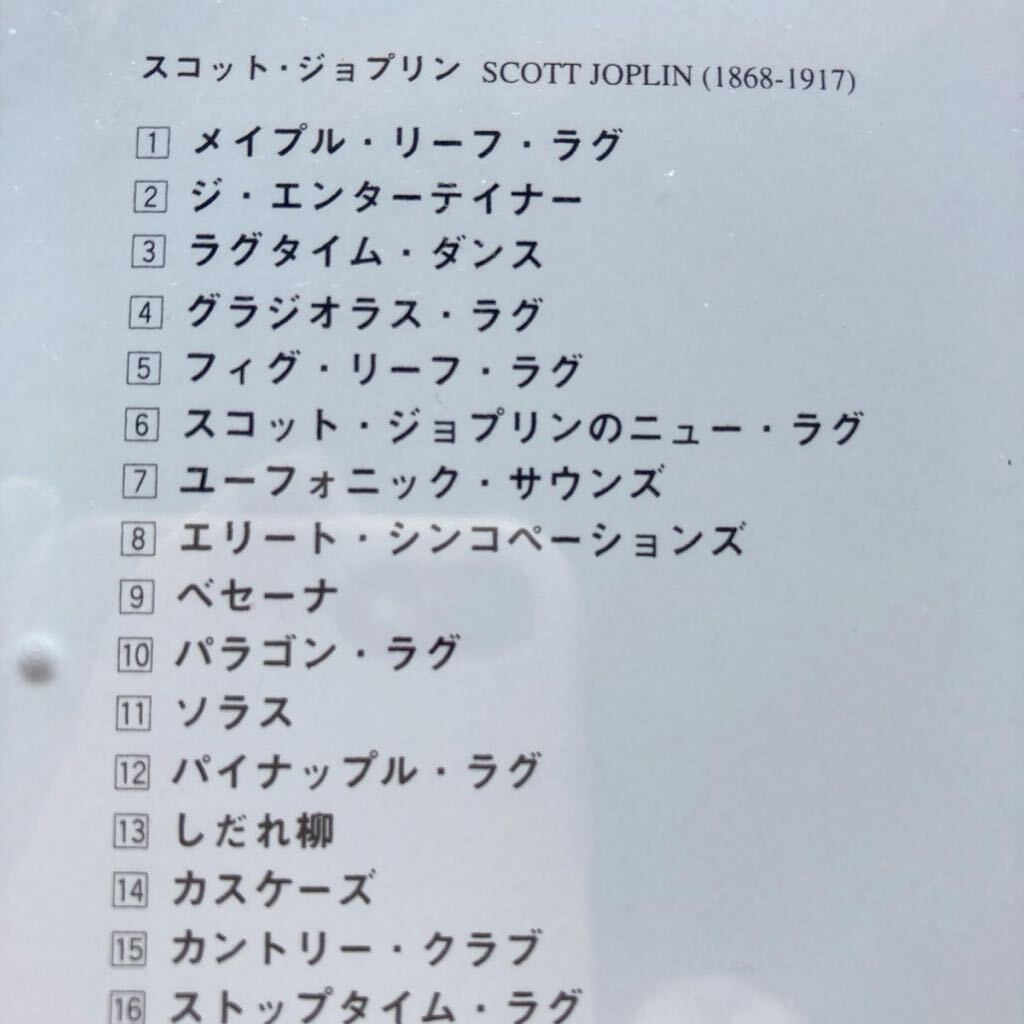 スコット・ジョプリン SCOTT JOPLIN (1868-1917)
1 メイプル・リーフ・ラグ
2 ジ・エンターテイナー
3 ラグタイム・ダンス
4 グラジオラス・ラグ
5 フィグ・リーフ・ラグ
6 スコット・ジョプリンのニュー・ラグ
7 ユーフォニック・サウンズ
8 エリート・シンコペーションズ
9 ベセーナ
10 パラゴン・ラグ
11 ソラス
12 パイナップル・ラグ
13 しだれ柳
14 カスケーズ
15 カントリー・クラブ
16 ストップタイム・ラグ